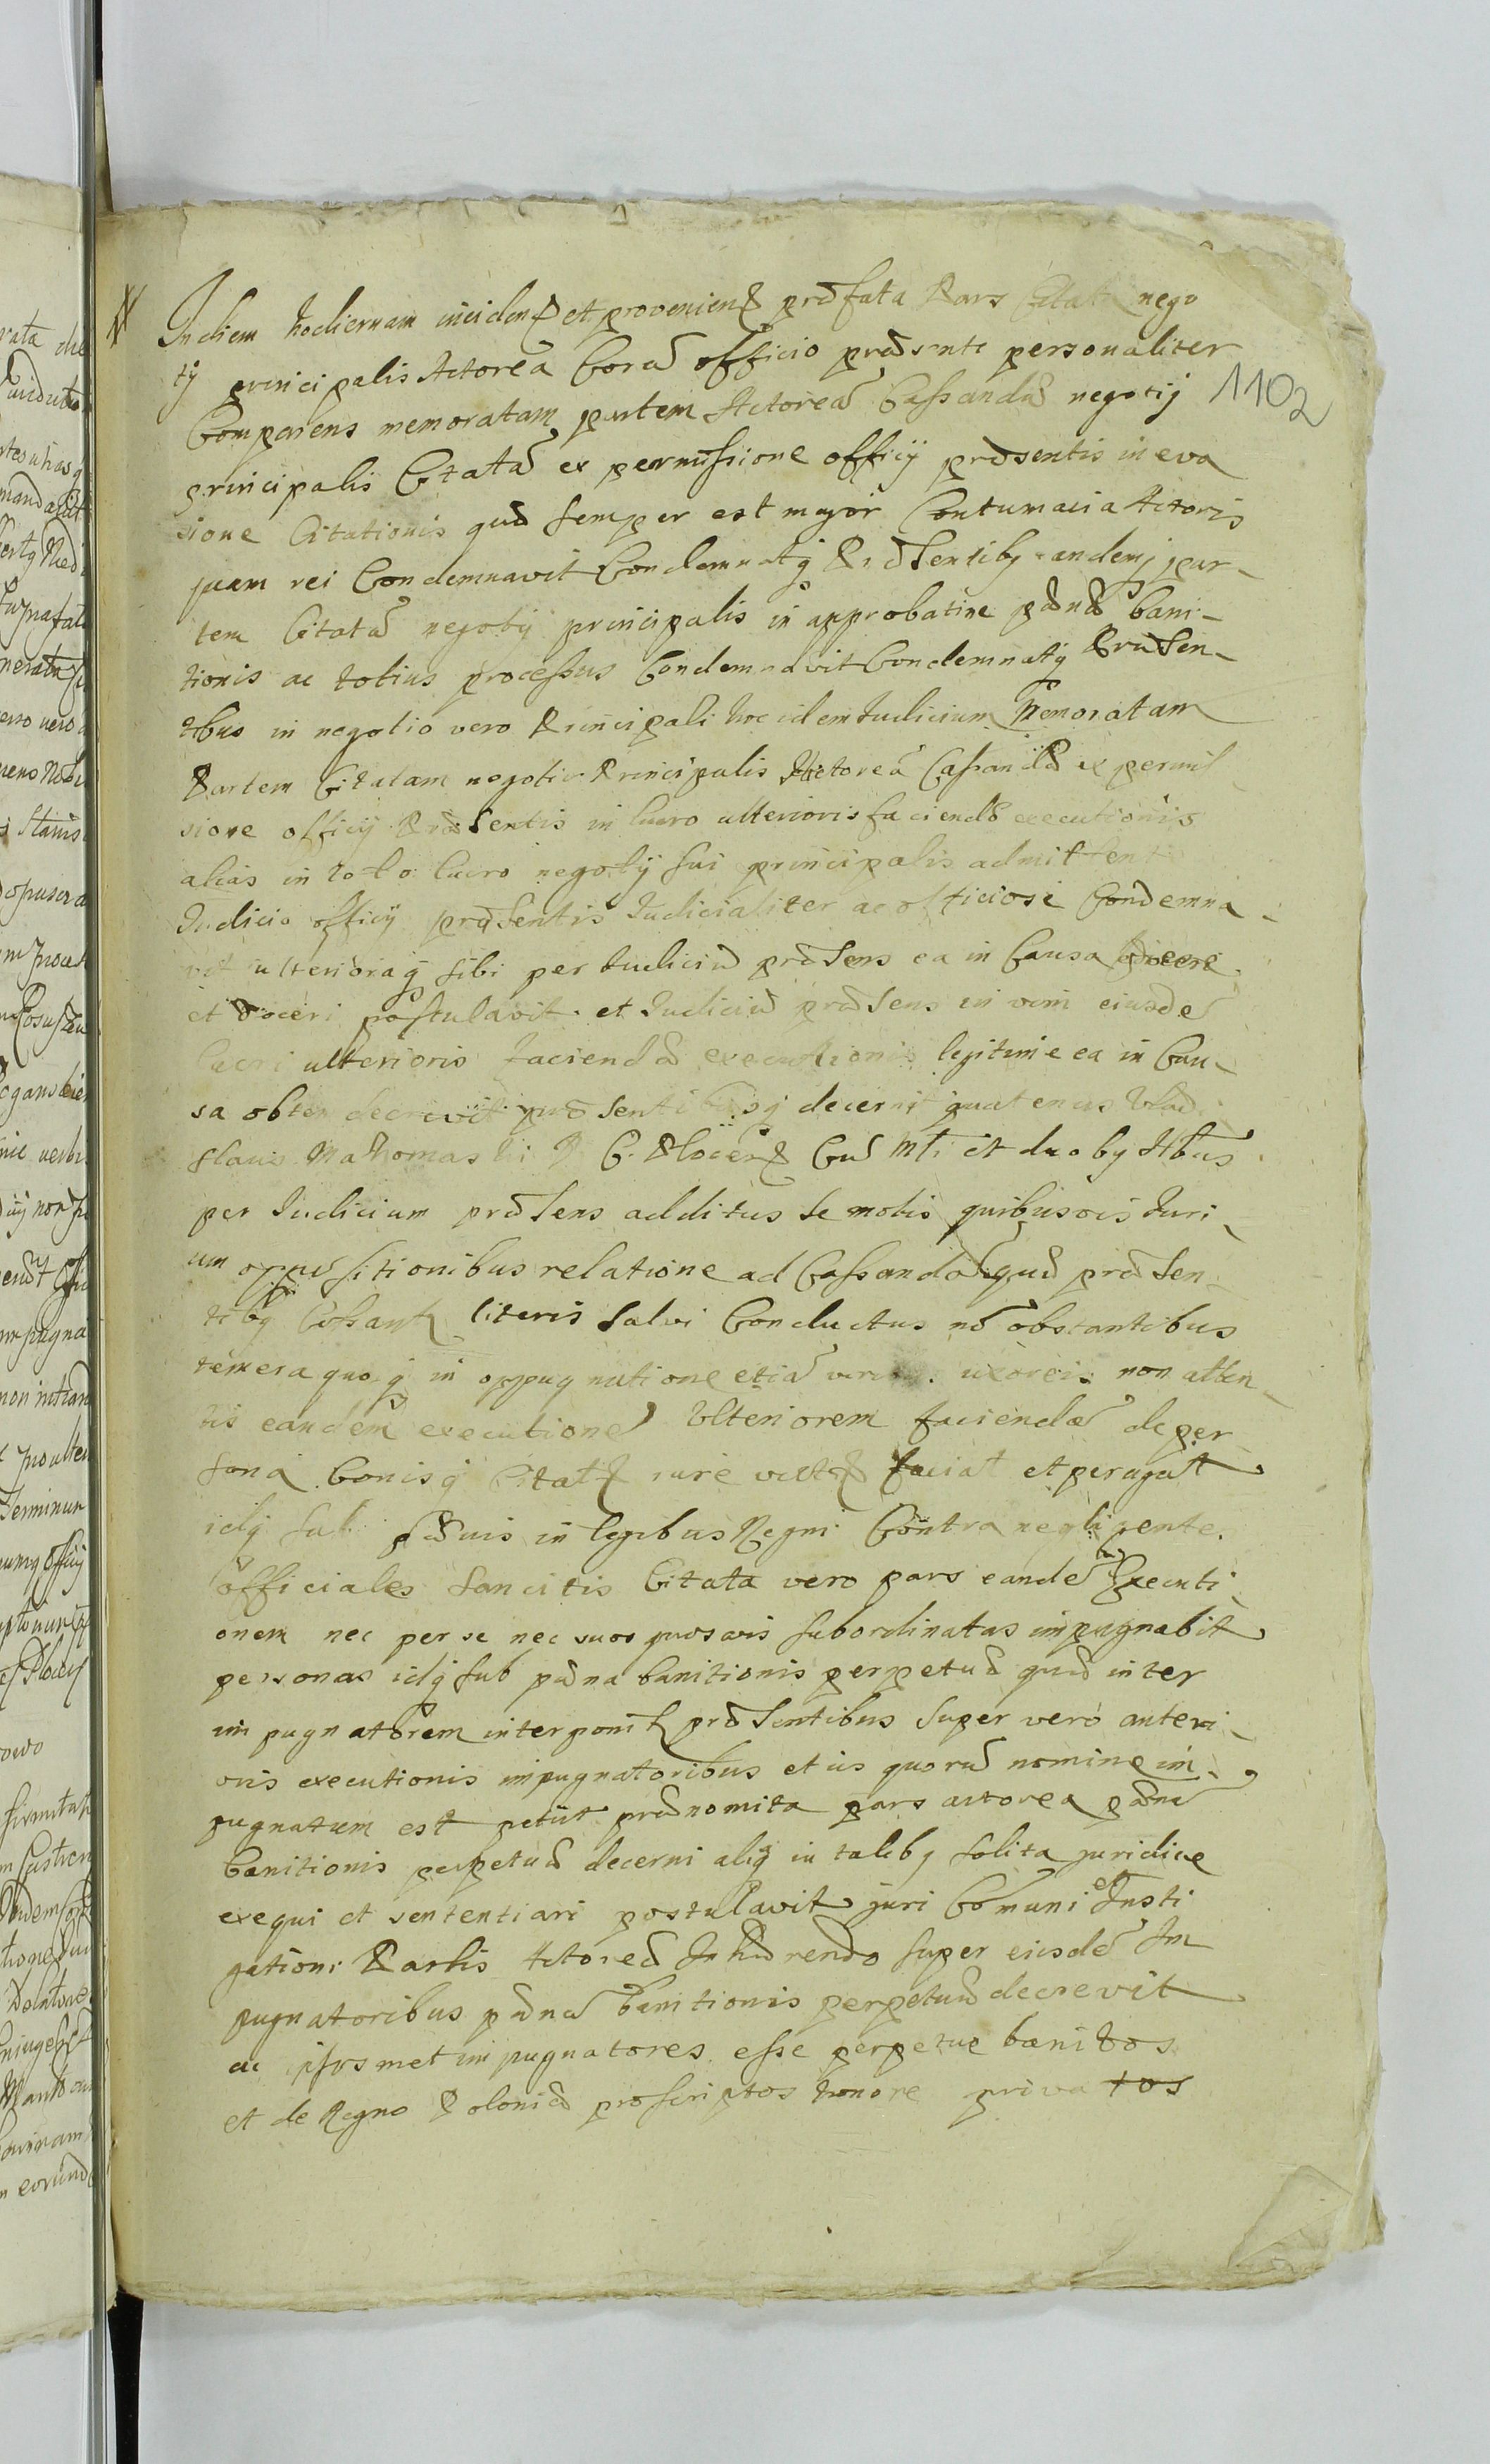 In diem hodiernam inciden et provenien præfata Pars Citata nego
tÿ principalis Actorea Corã officio præsenti personaliter
1102
Comparens memoratam partem Actoreã Cassandã negotÿ
principalis Citatã ex permissione officÿ præsentis in eva
sione Citationis quæ semper est major Contumacia Actoris
quam rei Condemnavit Condemnatq præsentibq eandemq par-
tem Citatã negotÿ principalis in approbatine pænæ bani-
tionis ac totius processus Condemnavit Condemnatq Præsen-
tibus in negotio vero Principali hoc idem Iudicium Memoratam
Partem Citatam negotii Principalis Actoreã Cassandã ex permis
sione officÿ Præsentis in lucro ulterioris faciendæ executionis
alias in toto lucro negotÿ sui principalis admittenti
Iudicio officÿ præsentis Iudicialiter ac officiose Condemna-
vit ulterioraq sibi per Iudiciũ præsens ea in Causa
et doceri postulavit. et Iudiciũ præsens in vim eiusdẽ
lucri ulterioris faciendæ executionis legitime ea in Cau-
sa obten decrevit præsentibusq decernit quatenus Vlad
slaus Makomaski P C Plocen Cũ Mti et duobq Nbus
per Iudicium præsens additus se motis quibusvis Iuri
um oppositionibus relatione ad Cassanda quæ præsen-
tibq Cassant literis salvi Conductus nõ obstantibus
temeraquoq in oppugnatione etiã uxorei non atten
tis eandem executionẽ Ulteriorem faciendã de per
sona bonisq Citat iure vict faciat et peragat
idq sub pænis in legibus Regni Contra negligente.
officiales sancitis Citata vero pars eandẽ Executi
onem nec per se nec suos quosvis subordinatas impugnabit
personas idq sub pæna banitionis perpetuæ quæ inter
impugnatorem interponit præsentibus super vero anteri
oris executionis impugnatoribus et iis quorũ nomine im-
pugnatum est petiit prænomita pars actorea pænã
banitionis perpetuæ decerni aliq in talibq solita juridice
exequi et sententiari postulavit juri Comuni et Insti
gationi Partis Actoreæ Inhærendo super eiusdẽ Im
pugnatoribus pænã banitionis perpetuæ decrevit
ac ipsosmet impugnatores esse perpetue banitos
et de Regno Poloniæ proscriptos honore privatos